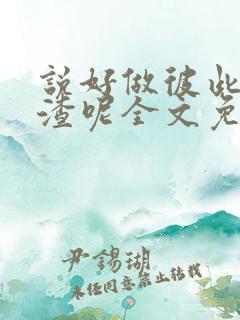 說好做彼此
渣呢全文免
尹錫瑚
未经同意禁止转载